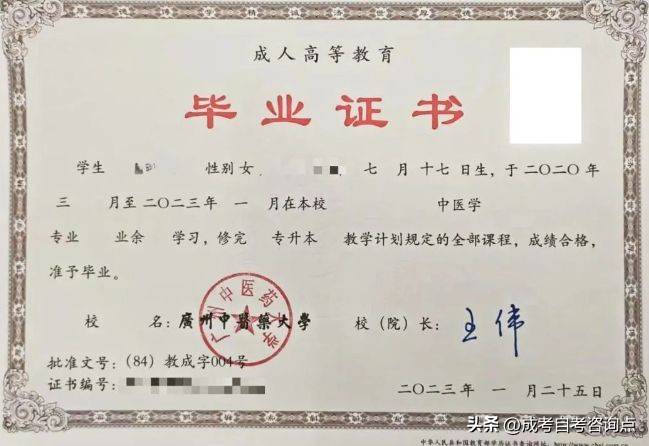 成人高等教育
毕业证书
学生 性别 女, 七 月 十七 日生，于 二〇二〇 年
三 月至 二〇二三 年 一 月在本校 中医学
专业 业余 学习，修完 专升本 教学计划规定的全部课程，成绩合格，
准予毕业。
广州中医药大学
校 名：廣州中醫藥大學 校（院）长：王伟
批准文号：(84) 教成字004号
证书编号：
二〇二三年 一 月二十五日
头条 @成考自考咨询点
中华人民共和国教育部学历证书查询网址：http://www.chsi.com.cn